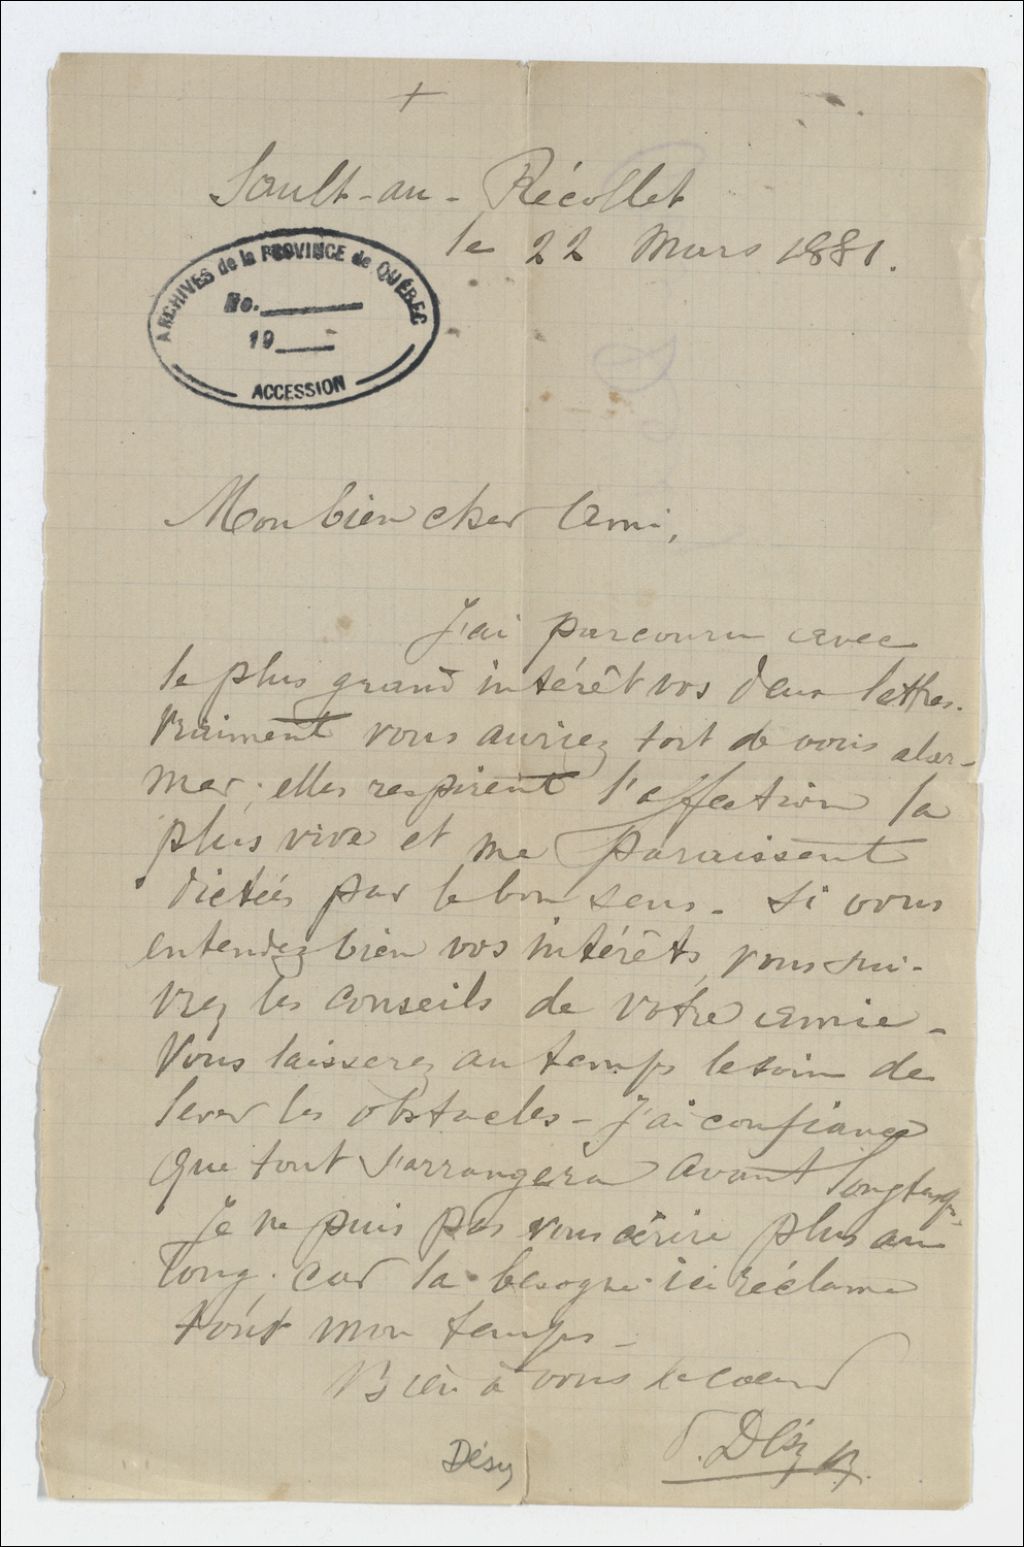 +
Sault-au-Récollet
le 22 Mars 1881.
ARCHIVES de la PROVINCE de QUÉBEC
No.
19
ACCESSION
Mon bien cher Ami,
J'ai parcouru avec
le plus grand intérêt vos deux lettres.
Vraiment vous auriez tort de vous alar-
mer; elles respirent l'affection la
plus vive et me paraissent
dictées par le bon sens. Si vous
entendez bien vos intérêts, vous sui-
vrez les conseils de votre amie -
Vous laisserez au temps le soin de
lever les obstacles - J'ai confiance
que tout s'arrangera avant longtemps.
Je ne puis pas vous écrire plus au
long; car la besogne ici réclame
tout mon temps -
Bien à vous de coeur
Désy
Désy